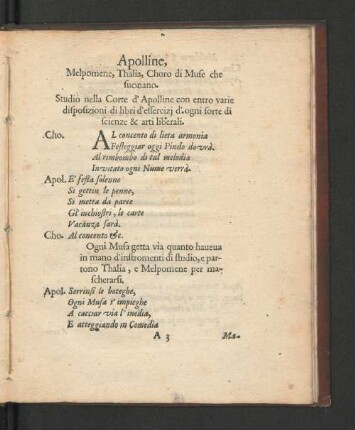 Apolline,
Melpomene, Thalia, Choro di Muse che
suonano.
Studio nella Corte d'Apolline con entro varie
disposizioni di libri d'essercizj d'ogni sorte di
scienze & arti liberali.
Cho. AL concento di lieta armonia
Festeggiar oggi Pindo dovrà.
Al rimbombo di tal melodia
Invitato ogni Nume verrà.
Apol. E' festa solenne
Si gettin le penne,
Si metta da parte
Gl' inchiostri, le carte
Vacanza sarà.
Cho. Al concento &c.
Ogni Musa getta via quanto haueua
in mano d'instromenti di studio, e par-
tono Thalia, e Melpomene per ma-
scherarsi.
Apol. Serrinsi le boteghe,
Ogni Musa s' impieghe
A cacciar via l' inedia,
E atteggiando in Comedia
A 3 Ma-